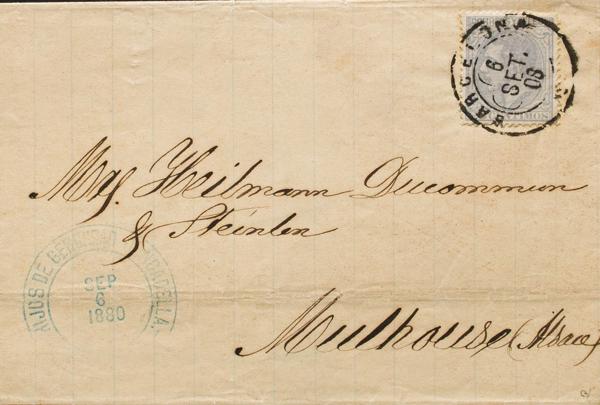 BARCELONA
6
SET.
80
Mrs. Heilmann Ducommun
& Steinlen
HIJOS DE
SEP
6
1880
Mulhouse (Alsace)